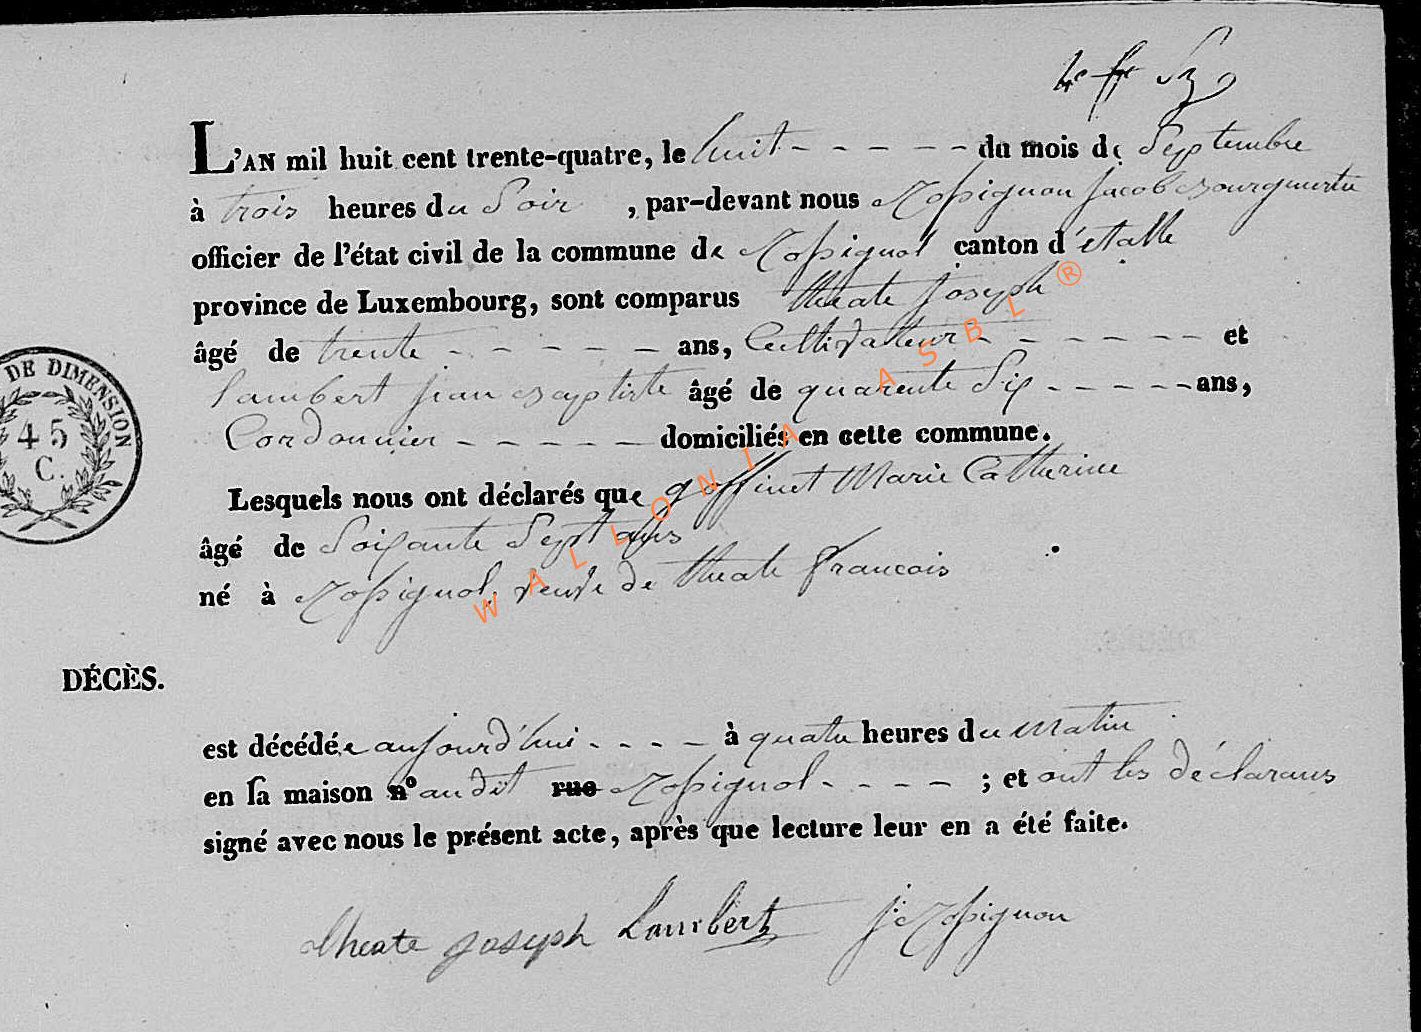 L'AN mil huit cent trente-quatre, le huit - - - - - du mois de Septembre
à trois heures du Soir , par-devant nous Rossignon Jacob Bourgmestre
officier de l'état civil de la commune de Rossignol canton d'étalle
province de Luxembourg, sont comparus theate Joseph
âgé de trente - - - - - - ans, Cultivatteur - - - - - - et
lambert jean Baptiste âgé de quarente Six - - - - - ans,
Cordonnier - - - - - - domiciliés en cette commune.
Lesquels nous ont déclarés que goffinet Marie Catherine
âgé de Soixante Sept ans
né à Rossignol, veuve de theate francois
DE DIMENSION
45
C.
DÉCÈS.
est décédée aujourd'hui - - - - à quatre heures du matin
en sa maison nº audit rue Rossignol - - - - ; et ont les déclarans
signé avec nous le présent acte, après que lecture leur en a été faite.
theate joseph Lambert J: Rossignon
WALLONIA ASBL ®